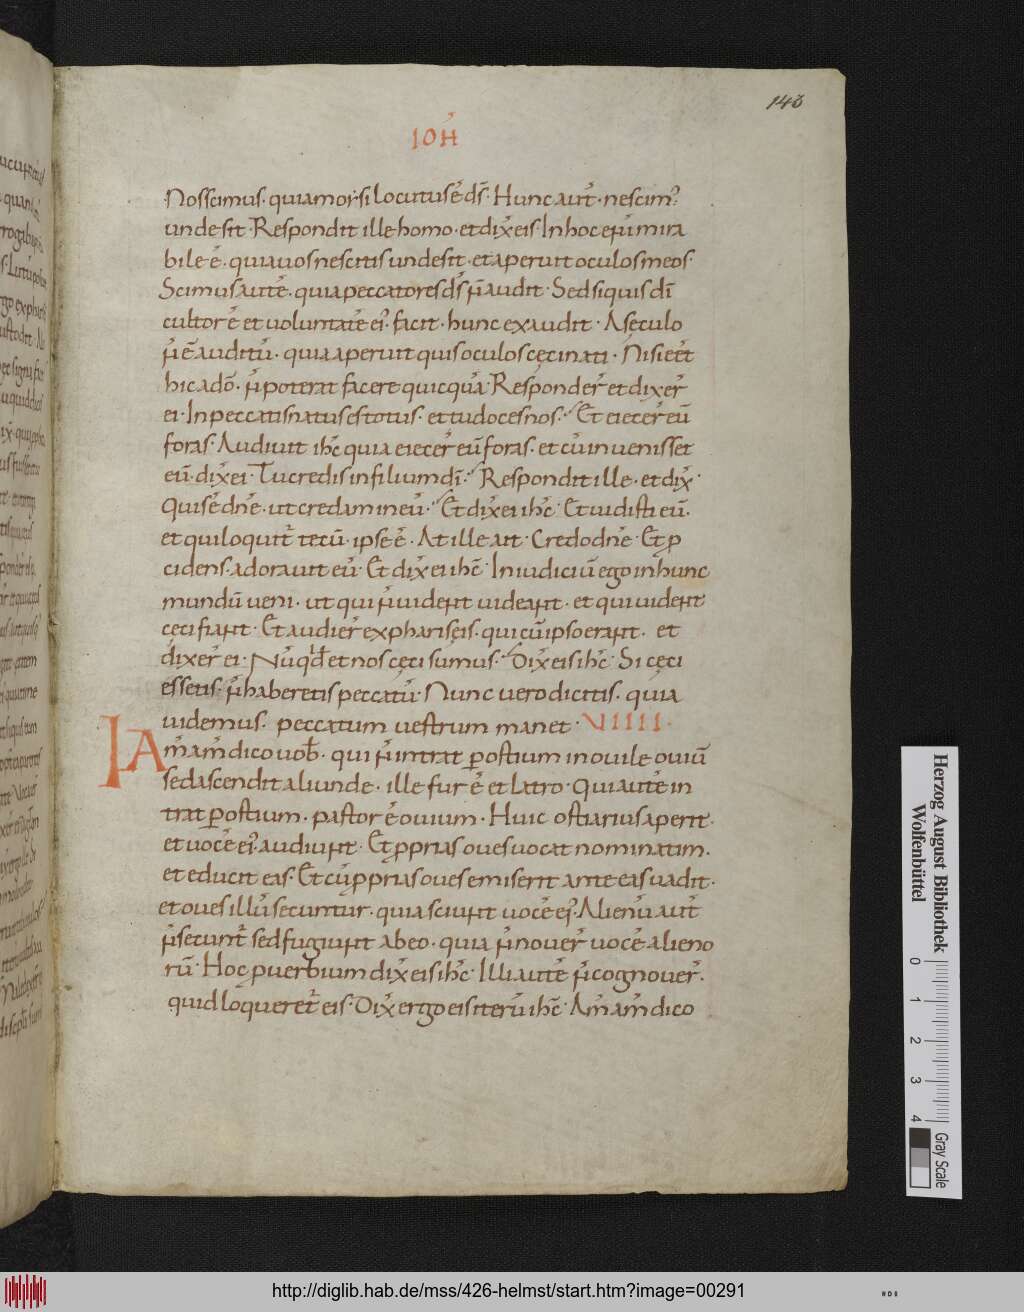 143
IOH̅
Nos scimus· quia moẏsi locutus ē d̄s· Hunc aut̄· nescim'
unde sit· Respondit ille homo· et dix̄ eis· In hoc eni̅ mira
bile ē· quia uos nescitis unde sit· et aperuit oculos meos·
Scimus autē· quia peccatores d̄s n̄ audit· Sed si quis dī
cultor ē et uoluntatē ei' facit· hunc exaudit· A seculo
n̄ ē auditū· quia aperuit quis oculos cęci nati· Nisi eēt
hic a dō· n̄ poterat facere quicquā· Responder̄ et dixer̄
ei· In peccatis natus es totus· et tu doces nos· Et eiecer̄ eū
foras· Audiuit ihc̄ quia eiecer̄ eū foras· et cū inuenisset
eū· dix̄ ei· Tu credis in filium dī· Respondit ille· et dix̄·
Quis ē dn̄e· ut credam in eū· Et dix̄ ei ihc̄· Et uidisti eū·
et qui loquit̄ tecū· ipse ē· At ille ait· Credo dn̄e· Et p
cidens· adorauit eū· Et dix̄ ei ihc̄· In iudiciū ego in hunc
mundū ueni· ut qui n̄ uident uideant· et qui uident
ceci fiant· Et audier̄ ex phariseis· qui cū ipso erant· et
dixer̄ ei· Nūqd̄ et nos cęci sumus· Dix̄ eis ihc̄· Si cęci
essetis· n̄ haberetis peccatū· Nunc uero dicitis· quia
uidemus· peccatum uestrum manet· VIIII·
IAm̄ am̄ dico uob̄· qui n̄ intrat p̲ ostium in ouile ouiū
sed ascendit aliunde· ille fur ē et latro· Qui autē in
trat p̲ ostium· pastor ē ouium· Huic ostiarius aperit·
et uocē ei' audiunt· Et pprias oues uocat nominatim·
et educit eas· Et cū pprias oues emiserit ante eas uadit·
et oues illū secuntur· quia sciunt uocē ei'· Alienū aut̄
n̄ secunt̄ sed fugiunt ab eo· quia n̄ nouer̄ uocē alieno
rū· Hoc puerbium dix̄ eis ihc̄· Illi autē n̄ cognouer̄·
quid loqueret̄ eis· Dix̄ ergo eis iterū ihc̄· Am̄ am̄ dico
Herzog August Bibliothek
Wolfenbüttel
0 1 2 3 4
Gray Scale
http://diglib.hab.de/mss/426-helmst/start.htm?image=00291